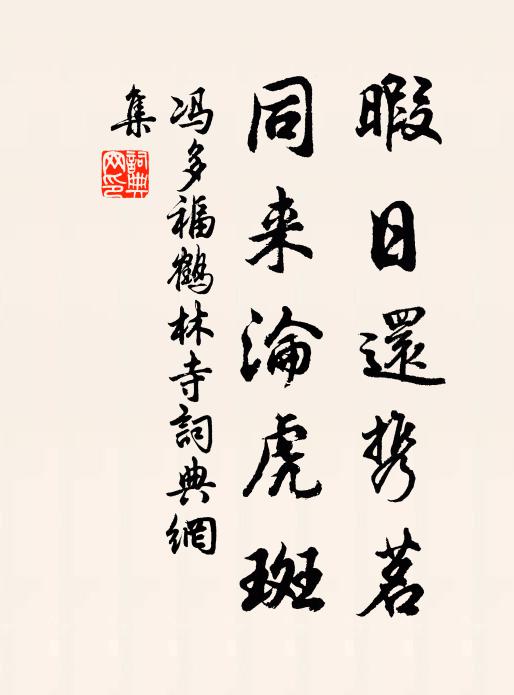 暇日還携茗
同来淪虎斑
冯多福鶴林寺詞典網
集
詞典
网印